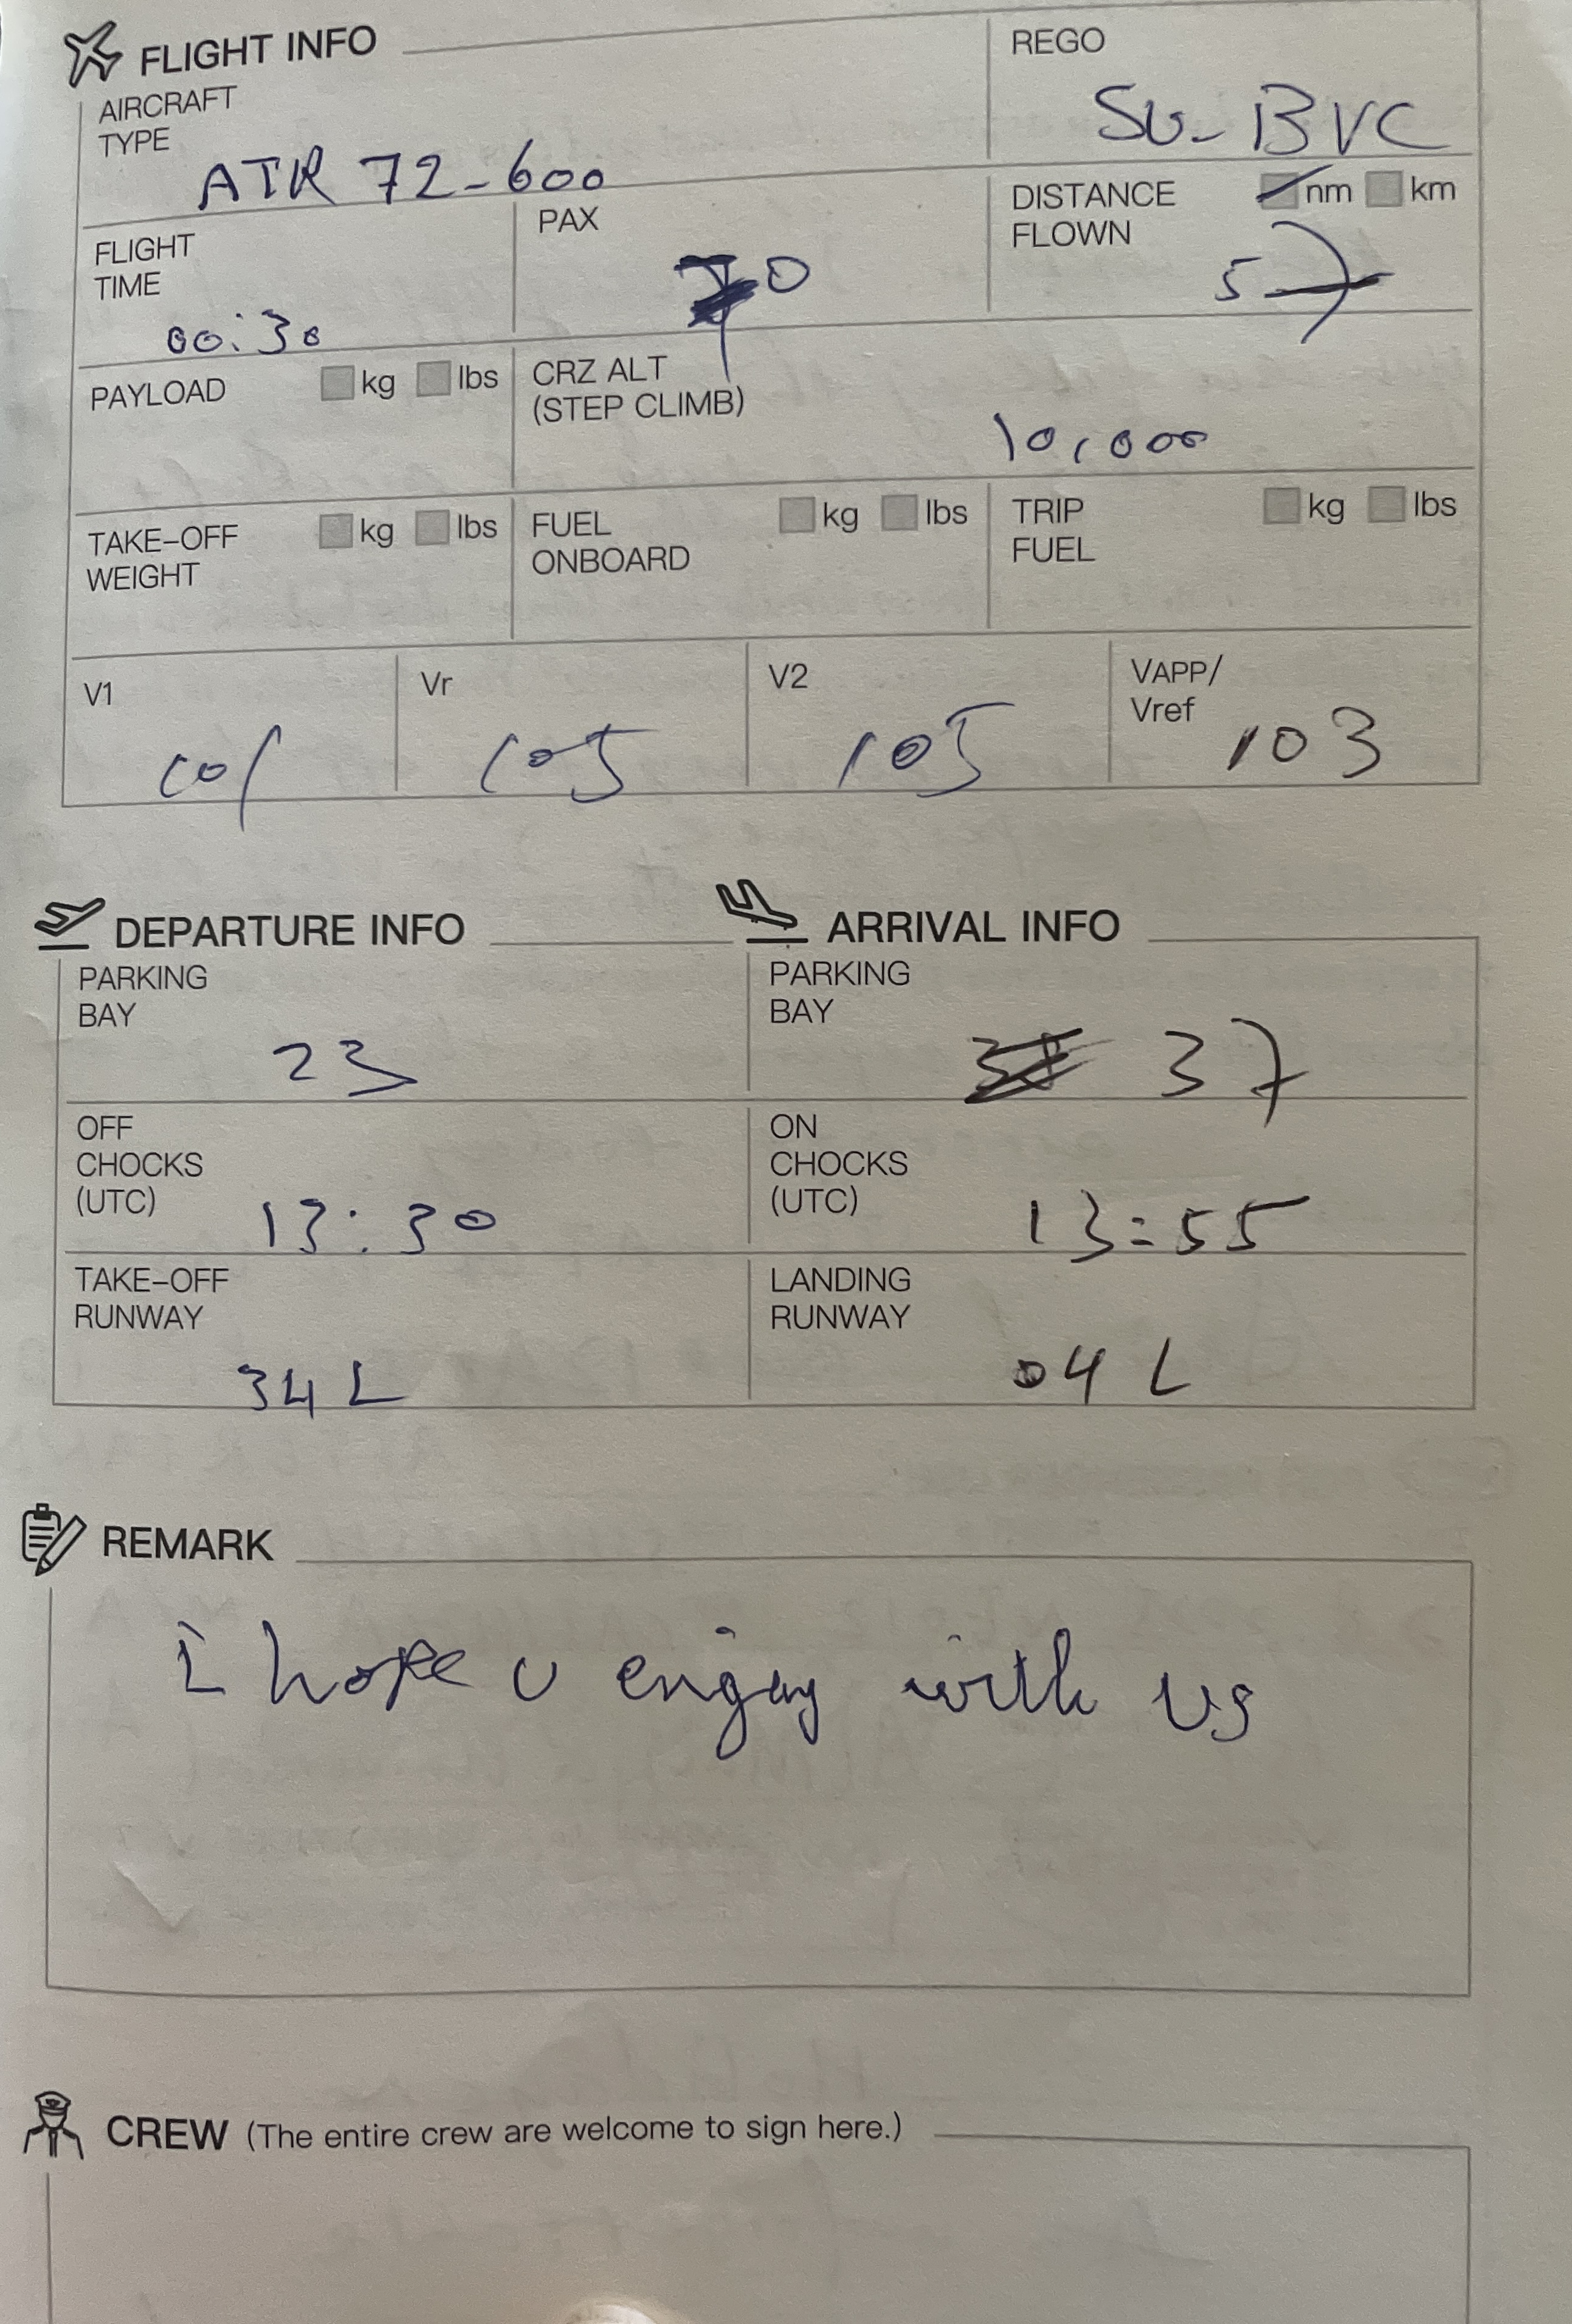 FLIGHT INFO
AIRCRAFT
TYPE
ATR 72-600
REGO
SU-BVC
FLIGHT
TIME
00:30
PAX
DISTANCE nm km
FLOWN
57
PAYLOAD kg lbs
CRZ ALT
(STEP CLIMB)
10,000
TAKE-OFF kg lbs
WEIGHT
FUEL kg lbs
ONBOARD
TRIP kg lbs
FUEL
V1
101
Vr
105
V2
105
VAPP/
Vref
103
DEPARTURE INFO
PARKING
BAY
23
OFF
CHOCKS
(UTC)
13:30
TAKE-OFF
RUNWAY
34 L
ARRIVAL INFO
PARKING
BAY
37
ON
CHOCKS
(UTC)
13:55
LANDING
RUNWAY
04 L
REMARK
i hope u engay with us
CREW (The entire crew are welcome to sign here.)